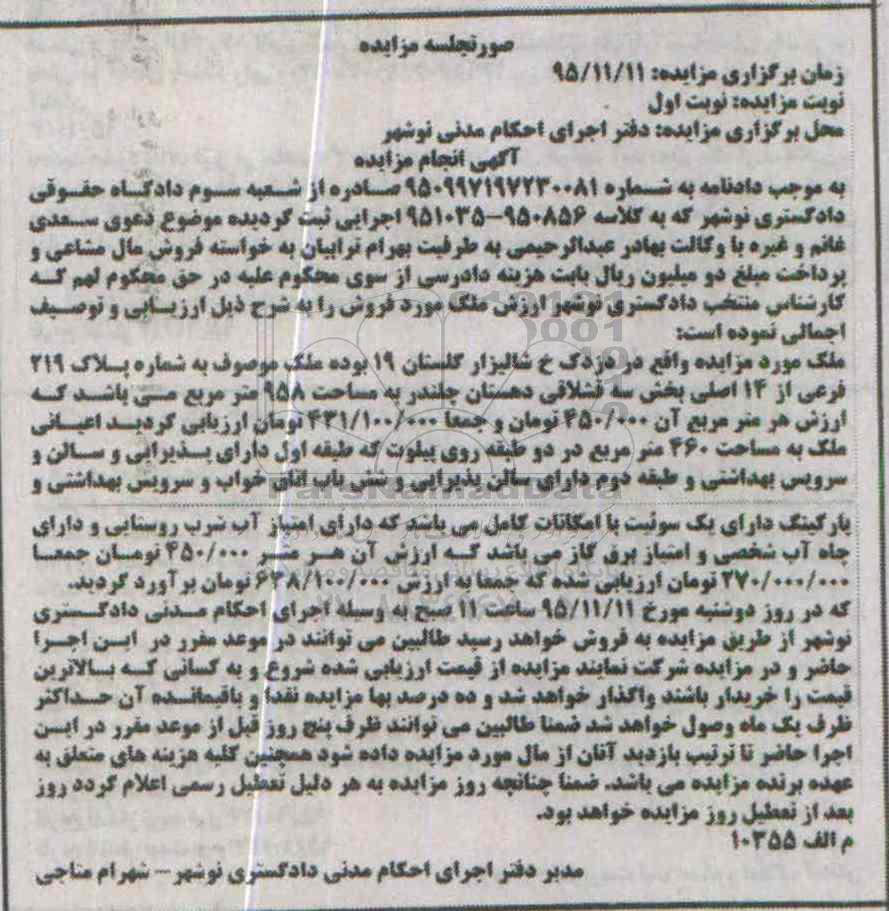 صورتجلسه مزایده
زمان برگزاری مزایده: ۹۵/۱۱/۱۱
نوبت مزایده: نوبت اول
محل برگزاری مزایده: دفتر اجرای احکام مدنی نوشهر
آگهی انجام مزایده
به موجب دادنامه به شماره ۹۵۰۹۹۷۱۹۷۲۳۰۰۸۱ صادره از شعبه سوم دادگاه حقوقی
دادگستری نوشهر که به کلاسه ۹۵۰۸۵۶-۹۵۱۰۳۵ اجرایی ثبت گردیده موضوع دعوی سعدی
غانم و غیره با وکالت بهادر عبدالرحیمی به طرفیت بهرام ترابیان به خواسته فروش مال مشاعی و
پرداخت مبلغ دو میلیون ریال بابت هزینه دادرسی از سوی محکوم علیه در حق محکوم لهم که
کارشناس منتخب دادگستری نوشهر ارزش ملک مورد فروش را به شرح ذیل ارزیابی و توصیف
اجمالی نموده است:
ملک مورد مزایده واقع در دزدک خ شالیزار گلستان ۱۹ بوده ملک موصوف به شماره پلاک ۲۱۹
فرعی از ۱۴ اصلی بخش سه قشلاقی دهستان چلندر به مساحت ۹۵۸ متر مربع می باشد که
ارزش هر متر مربع آن ۴۵۰/۰۰۰ تومان و جمعا ۴۳۱/۱۰۰/۰۰۰ تومان ارزیابی گردید اعیانی
ملک به مساحت ۴۶۰ متر مربع در دو طبقه روی پیلوت که طبقه اول دارای پذیرایی و سالن و
سرویس بهداشتی و طبقه دوم دارای سالن پذیرایی و شش باب اتاق خواب و سرویس بهداشتی و
پارکینگ دارای یک سوئیت با امکانات کامل می باشد که دارای امتیاز آب شرب روستایی و دارای
چاه آب شخصی و امتیاز برق گاز می باشد که ارزش آن هر متر ۴۵۰/۰۰۰ تومان جمعا
۲۷۰/۰۰۰/۰۰۰ تومان ارزیابی شده که جمعا به ارزش ۶۳۸/۱۰۰/۰۰۰ تومان برآورد گردید.
که در روز دوشنبه مورخ ۹۵/۱۱/۱۱ ساعت ۱۱ صبح به وسیله اجرای احکام مدنی دادگستری
نوشهر از طریق مزایده به فروش خواهد رسید طالبین می توانند در موعد مقرر در این اجرا
حاضر و در مزایده شرکت نمایند مزایده از قیمت ارزیابی شده شروع و به کسانی که بالاترین
قیمت را خریدار باشند واگذار خواهد شد و ده درصد بها مزایده نقدا و باقیمانده آن حداکثر
ظرف یک ماه وصول خواهد شد ضمنا طالبین می توانند ظرف پنج روز قبل از موعد مقرر در این
اجرا حاضر تا ترتیب بازدید آنان از مال مورد مزایده داده شود همچنین کلیه هزینه های متعلق به
عهده برنده مزایده می باشد. ضمنا چنانچه روز مزایده به هر دلیل تعطیل رسمی اعلام گردد روز
بعد از تعطیل روز مزایده خواهد بود.
م الف ۱۰۳۵۵
مدیر دفتر اجرای احکام مدنی دادگستری نوشهر - شهرام مناجی
ParsNamadData